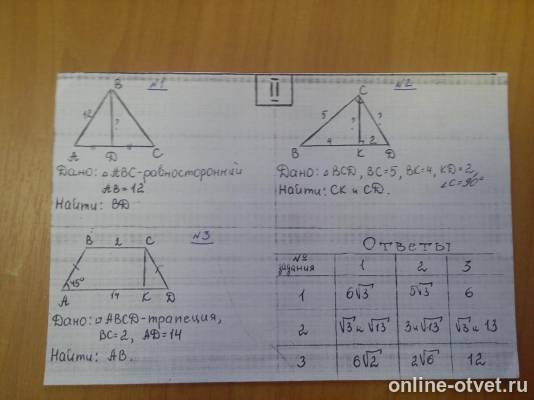 II
№1
B
12
?
A D C
Дано: △ABC-равносторонний
AB=12
Найти: BD
№2
C
5 ? ?
4 2
B K D
Дано: △BCD, BC=5, BK=4, KD=2,
∠C=90°
Найти: CK и CD.
№3
B 2 C
45°
A 14 K D
Дано: ▱ABCD-трапеция,
BC=2, AD=14
Найти: AB.
Ответы
№ задания 1 2 3
1 6√3 5√3 6
2 √3 и √13 3 и √13 √3 и 13
3 6√2 2√6 12
online-otvet.ru